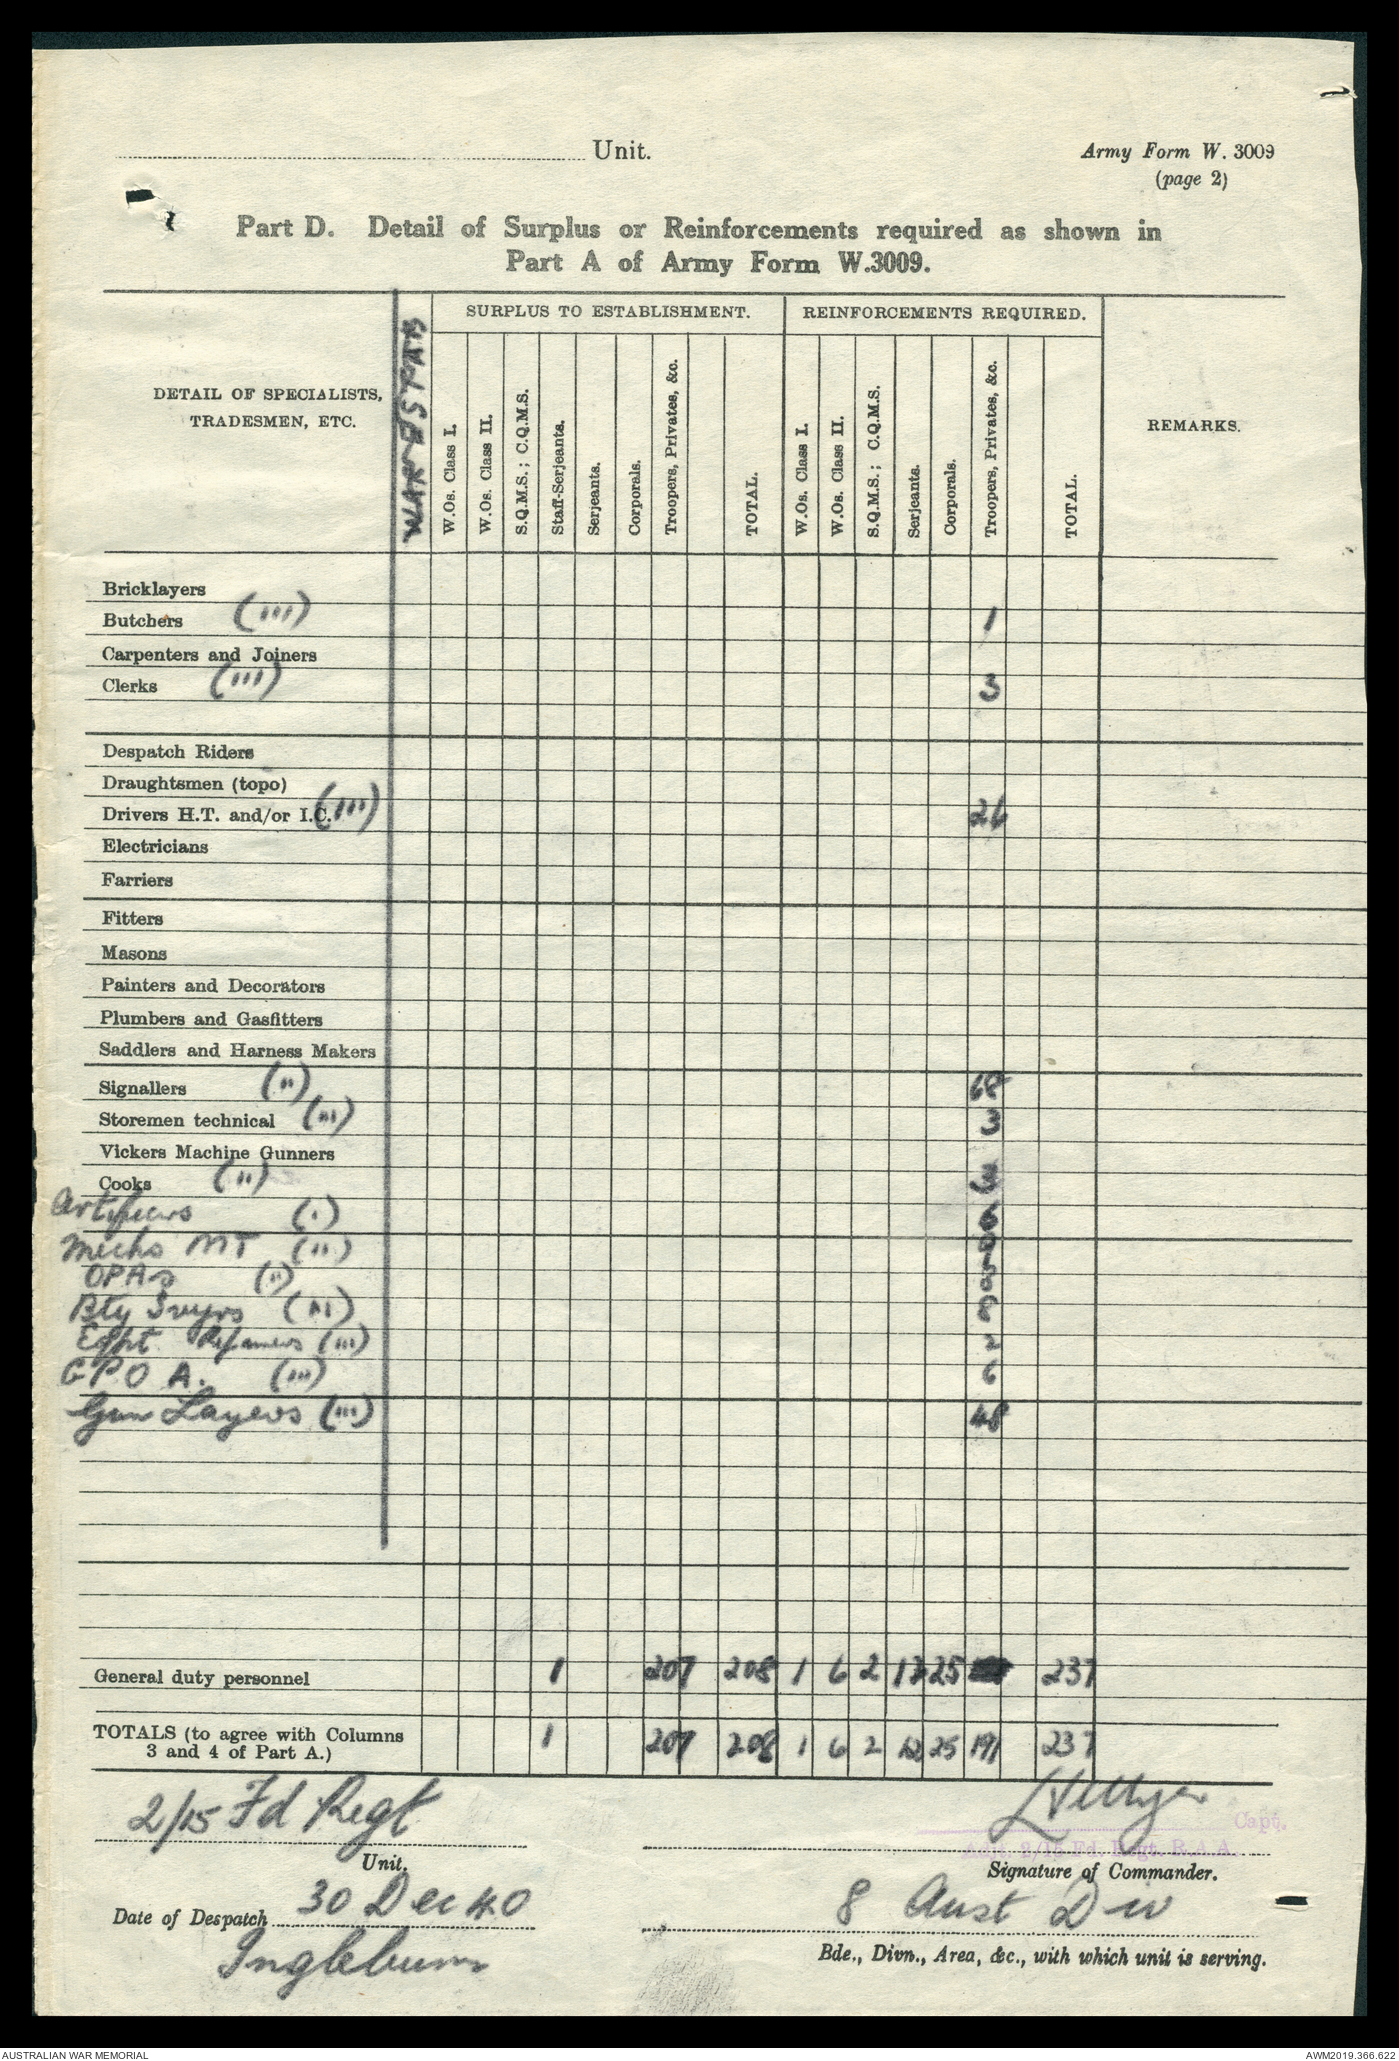 Unit.
Army Form W. 3009
(page 2)
Part D. Detail of Surplus or Reinforcements required as shown in
Part A of Army Form W.3009.
DETAIL OF SPECIALISTS,
TRADESMEN, ETC.
SURPLUS TO ESTABLISHMENT.
REINFORCEMENTS REQUIRED.
REMARKS.
W.Os. Class I.
W.Os. Class II.
S.Q.M.S.; C.Q.M.S.
Staff-Serjeants.
Serjeants.
Corporals.
Troopers, Privates, &c.
TOTAL.
W.Os. Class I.
W.Os. Class II.
S.Q.M.S.; C.Q.M.S.
Serjeants.
Corporals.
Troopers, Privates, &c.
TOTAL.
Bricklayers
Butchers (III) 1
Carpenters and Joiners
Clerks (III) 3
Despatch Riders
Draughtsmen (topo)
Drivers H.T. and/or I.C. (III) 26
Electricians
Farriers
Fitters
Masons
Painters and Decorators
Plumbers and Gasfitters
Saddlers and Harness Makers
Signallers (II) 68
Storemen technical (III) 3
Vickers Machine Gunners
Cooks (II)
Artificers (I) 6
Mechs MT (II)
OPAs (II)
Bty Svyrs (III) 8
Eqpt Repairers (III) 2
G.P.O A. (III) 6
Gun Layers (III) 48
General duty personnel 1 207 208 1 6 2 12 25 237
TOTALS (to agree with Columns 1 207 208 1 6 2 12 25 191 237
3 and 4 of Part A.)
2/15 Fd Regt
Unit.
Capt.
Adjt. 2/15 Fd. Regt. R.A.A.
Signature of Commander.
Date of Despatch 30 Dec 40
8 Aust Div
Ingleburn
Bde., Divn., Area, &c., with which unit is serving.
AUSTRALIAN WAR MEMORIAL
AWM2019.366.622